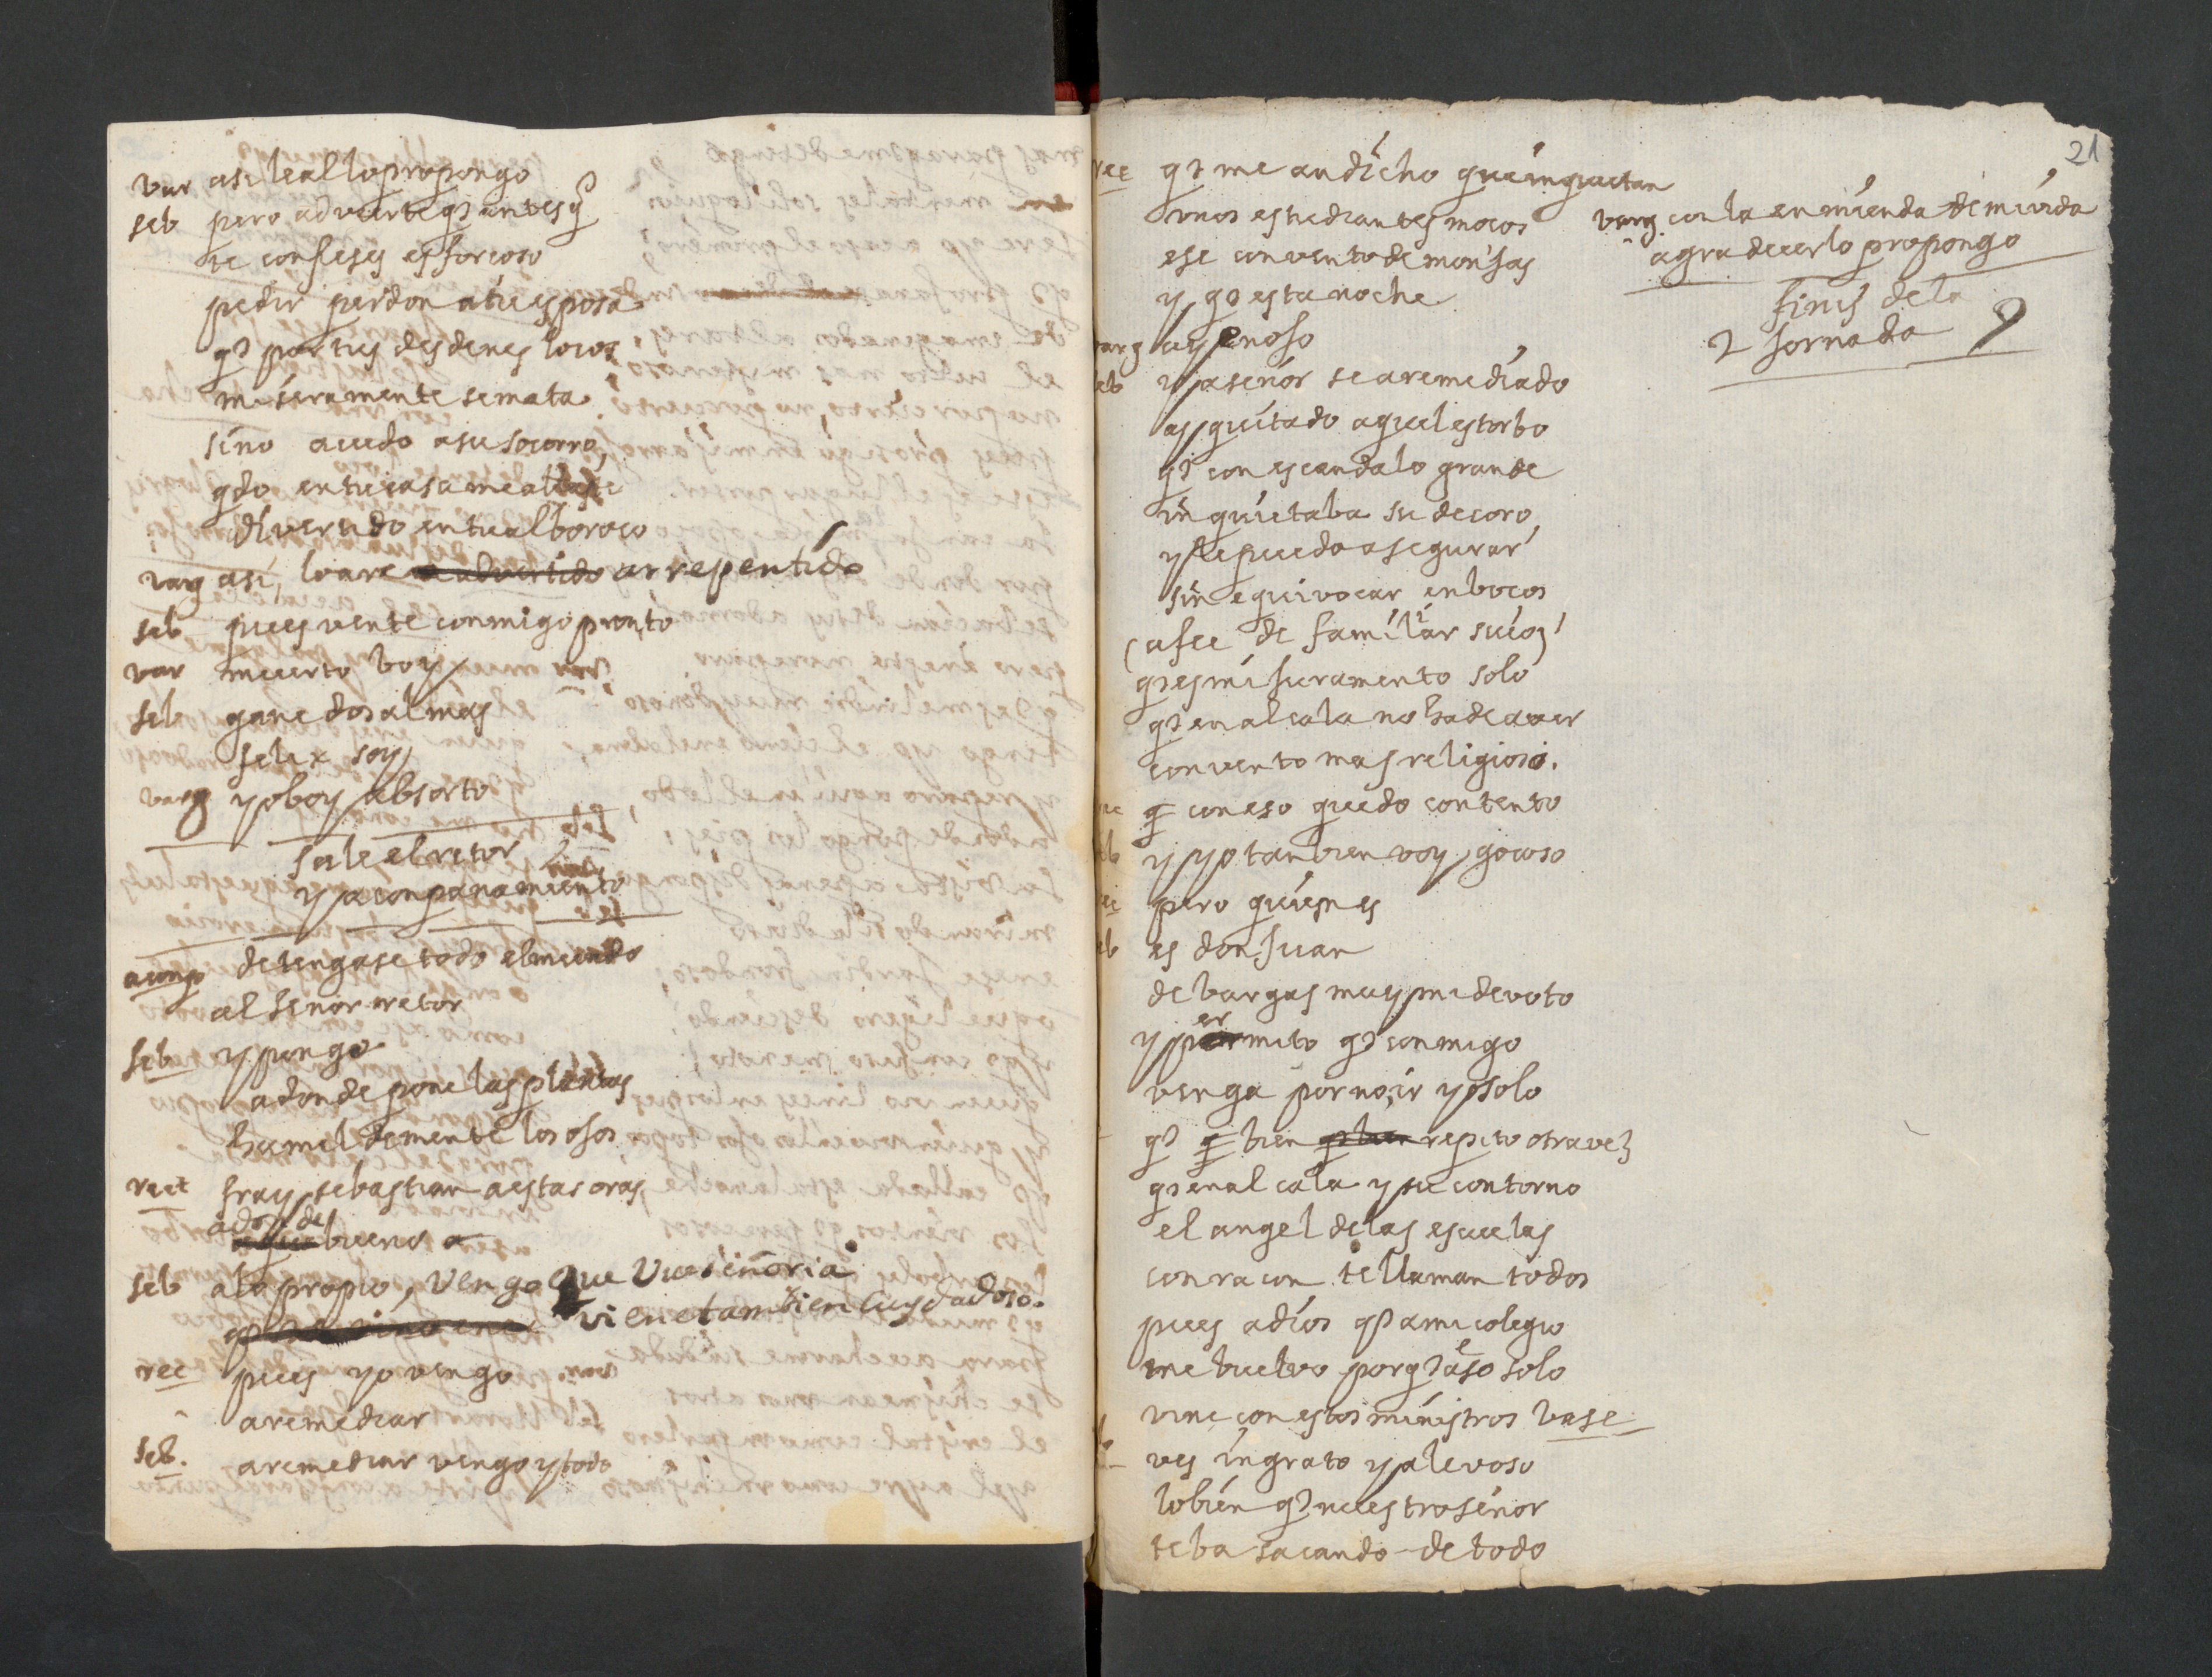 var asi leal lo propongo
seb pero advierte q̃ antes q̃
te confieses es forçoso
pedir perdon a tu esposa
q̃ por tus desdenes locos
miseramente se mata
sino acudo a su socorro,
qdo en tu casa me
divertido en tu alboroço
varg asi, lo are advertido arrepentido
seb pues vente conmigo pronto
var muerto boy
seb gane dos almas
felix soy
varg yo boy absorto
sale el retor
y aconpanamiento
aconp detengase todo el mundo
al senor retor
seb y pongo
adonde pone las plantas
humildemente los ojos
rect fray sebastian a estas oras,
adonde bueno a
seb a lo propio, vengo que Vueseñoria
viene tambien cuydadoso.
rec pues yo vengo
a remediar
seb. a remediar vengo y todo
21
rec q̃ me an dicho que inquietan
unos estudiantes mocos
ese convento de monjas
y q̃ esta noche
varg ay penoso
seb ya señor se a remediado
y quitado aquel estorbo
q̃ con escandalo grande
inquietaba su decoro,
y le puedo asegurar
sin equivocar enbocos
(a fee de familiar suio)
q̃ es mi juramento solo
q̃ en alcala no ha de aver
convento mas religioso.
rec q̃ con eso quedo contento
seb y yo tanbien voy gocoso
rec pero quien es
seb es don Juan
de bargas muy mi devoto
y permito q̃ conmigo
venga por no ir yo solo
q̃ q̃ bien q̃ bien repito otra vez
q̃ en alcala y su contorno
el angel de las escuelas
con racon te llaman todos
pues adios q̃ a mi colegio
me buelvo porq̃ a eso solo
vine con estos ministros base
seb ves ingrato y alevoso
lo bien q̃ nuestro señor
te ba sacando de todo
varg con la enmienda de mi vida
agradecerlo propongo
finis de la
2 Jornada